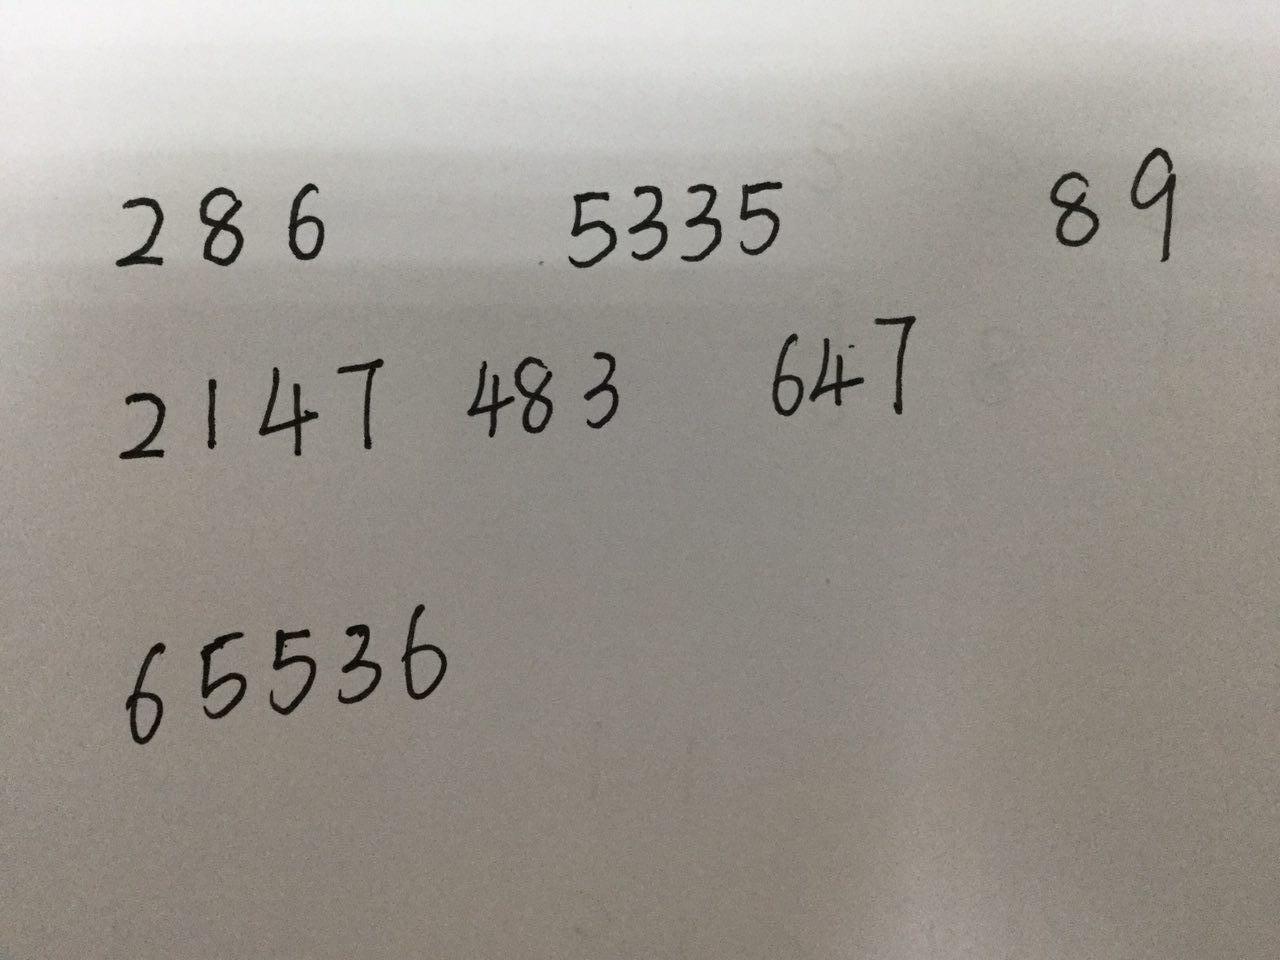 286 5335 89
2147 483 647
65536